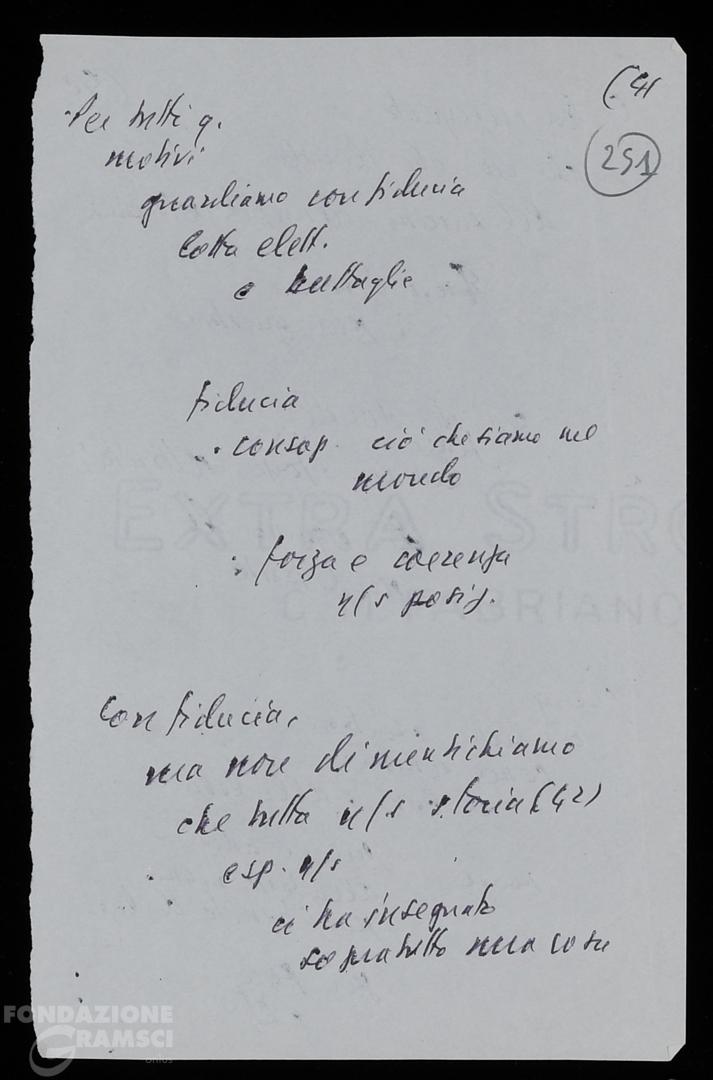 (41
251
Per tutti q.
motivi
guardiamo con fiducia
lotta elett.
e battaglie
fiducia
. consap. ciò che siamo nel
mondo
. forza e coerenza
n/s posiz.
EXTRA STRO
FABRIANO
Con fiducia,
ma non dimentichiamo
che tutta n/s storia (42)
esp. n/s
ci ha insegnato
sopratutto una cosa
FONDAZIONE
GRAMSCI
onlus